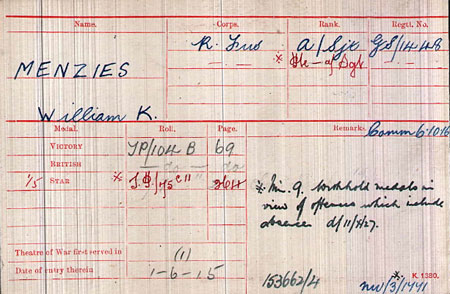 Name. Corps. Rank. Regtl. No.
R. Fus A/Sjt GS/1448
MENZIES
William K.
Medal. Roll. Page. Remarks.
Comm 6.10.16
VICTORY TP/104 B 69
BRITISH — do — do
1/5 STAR
* withhold medals in
view of offences which include
absence
Theatre of War first served in (1)
Date of entry therein 1-6-15
153662/4
K. 1380.
NW/3/1741